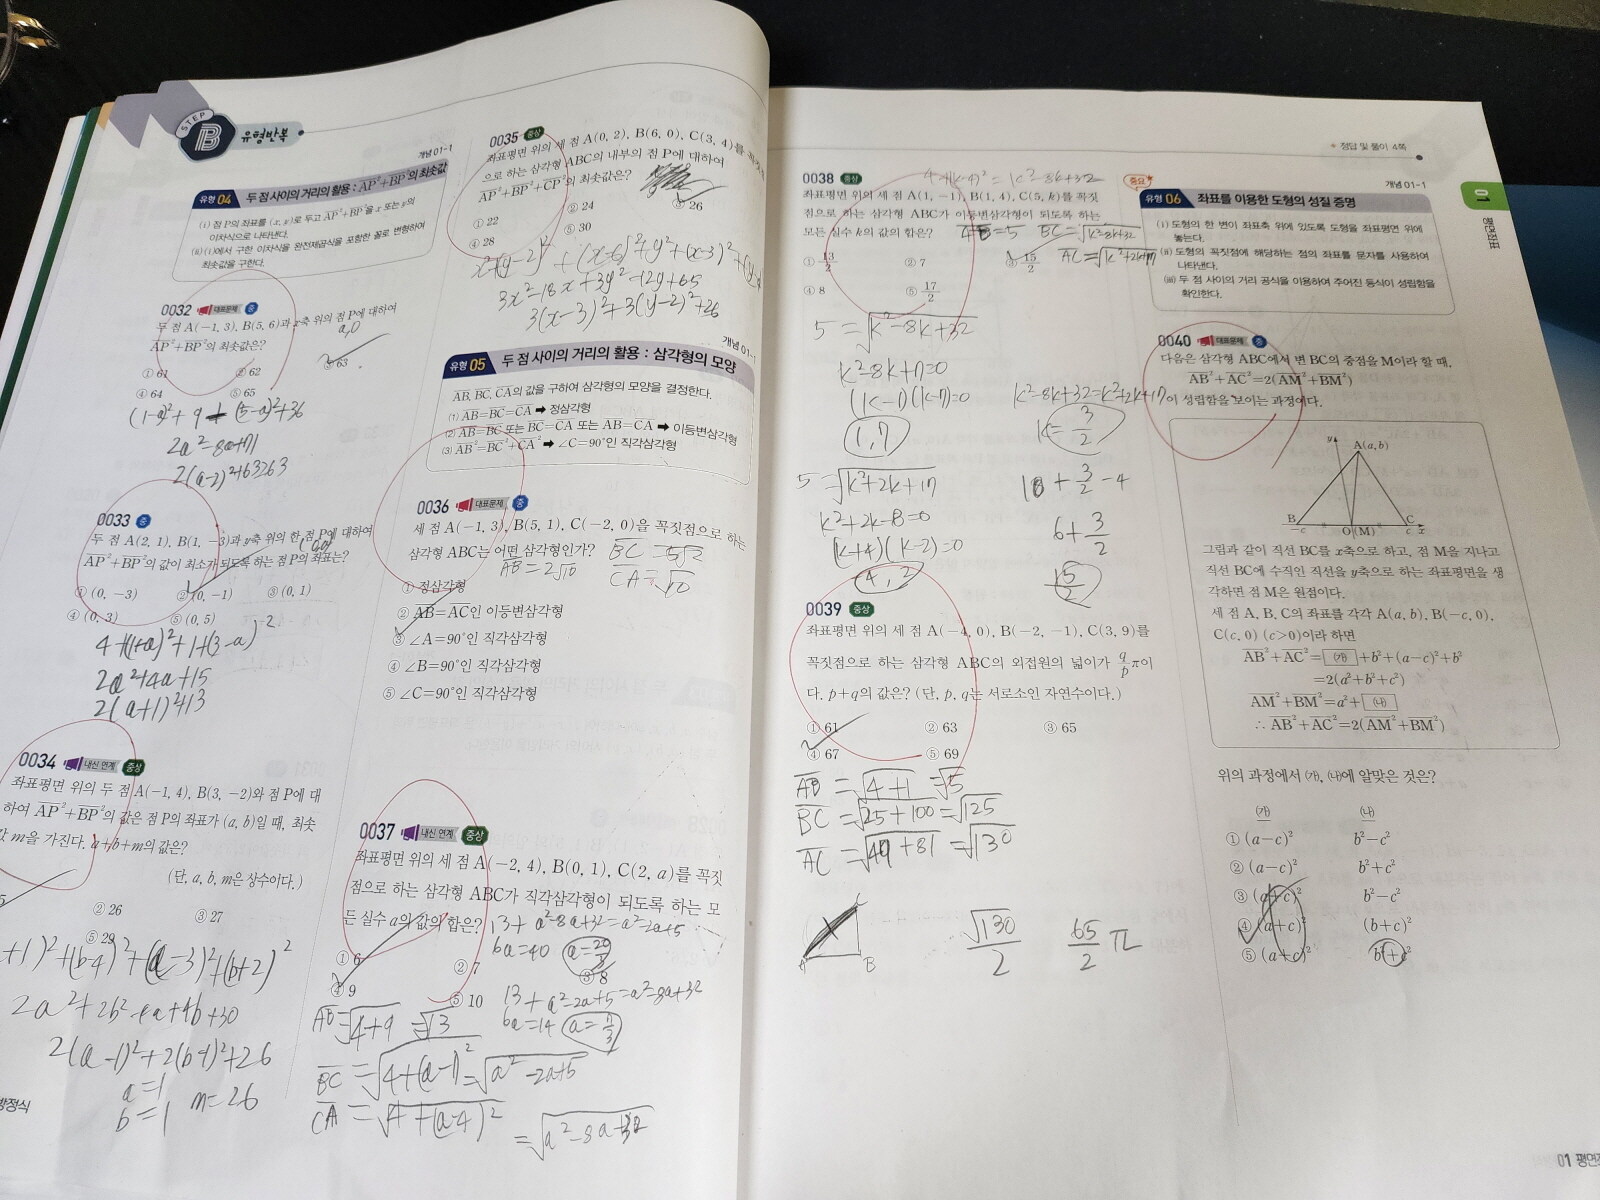 STEP
B 유형반복
개념 01-1
유형 04 두 점 사이의 거리의 활용 : AP²+BP²의 최솟값
(i) 점 P의 좌표를 (x, y)로 두고 AP²+BP²을 x 또는 y의
이차식으로 나타낸다.
(ii) (i)에서 구한 이차식을 완전제곱식을 포함한 꼴로 변형하여
최솟값을 구한다.
0032 대표문제 중
두 점 A(−1, 3), B(5, 6)과 x축 위의 점 P에 대하여
a,0
AP²+BP²의 최솟값은?
① 61 ② 62 ③ 63
④ 64 ⑤ 65
2a²-8a+71
0033 중
두 점 A(2, 1), B(1, −3)과 y축 위의 한 점 P에 대하여
AP²+BP²의 값이 최소가 되도록 하는 점 P의 좌표는?
① (0, −3) ② (0, −1) ③ (0, 1)
④ (0, 3) ⑤ (0, 5)
2a²+4a+15
2(a+1)²+13
0034 내신 연계 중상
좌표평면 위의 두 점 A(−1, 4), B(3, −2)와 점 P에 대
하여 AP²+BP²의 값은 점 P의 좌표가 (a, b)일 때, 최솟
값 m을 가진다. a+b+m의 값은?
(단, a, b, m은 상수이다.)
② 26 ③ 27
⑤ 29
+1)²+(b-4)²+(a-3)²+(b+2)²
2(a-1)²+2(b-1)²+26
a=1
b=1 m=26
방정식
0035 중상
좌표평면 위의 세 점 A(0, 2), B(6, 0), C(3, 4)를
으로 하는 삼각형 ABC의 내부의 점 P에 대하여
AP²+BP²+CP²의 최솟값은?
① 22 ② 24 ③ 26
④ 28 ⑤ 30
3x²-18x+3y²-12y+65
3(x-3)²+3(y-2)²+26
개념 01-1
유형 05 두 점 사이의 거리의 활용 : 삼각형의 모양
AB, BC, CA의 값을 구하여 삼각형의 모양을 결정한다.
(1) AB=BC=CA ➡ 정삼각형
(2) AB=BC 또는 BC=CA 또는 AB=CA ➡ 이등변삼각형
(3) AB²=BC²+CA² ➡ ∠C=90°인 직각삼각형
0036 대표문제 중
세 점 A(−1, 3), B(5, 1), C(−2, 0)을 꼭짓점으로 하는
삼각형 ABC는 어떤 삼각형인가?
BC=5√2
AB=2√10 CA=√10
① 정삼각형
② AB=AC인 이등변삼각형
③ ∠A=90°인 직각삼각형
④ ∠B=90°인 직각삼각형
⑤ ∠C=90°인 직각삼각형
0037 내신 연계 중상
좌표평면 위의 세 점 A(−2, 4), B(0, 1), C(2, a)를 꼭짓
점으로 하는 삼각형 ABC가 직각삼각형이 되도록 하는 모
든 실수 a의 값의 합은?
13+a²-8a+32=a²-2a+5
6a=40 a=20/3
① 6 ② 7 ③ 8
④ 9 ⑤ 10
13+a²-2a+5=a²-8a+32
AB=√4+9 =√13
BC=√4+(a-1)²=√a²-2a+5
CA=√4+(a-4)²
=√a²-8a+32
0038 중상
좌표평면 위의 세 점 A(1, −1), B(1, 4), C(5, k)를 꼭짓
점으로 하는 삼각형 ABC가 이등변삼각형이 되도록 하는
모든 실수 k의 값의 합은?
AB=5 BC=√k²-8k+32
AC=√k²+2k+17
① 13/2 ② 7 ③ 15/2
④ 8 ⑤ 17/2
5=√k²-8k+32
k²-8k+7=0
(k-1)(k-7)=0
1,7
k²-8k+32=k²+2k+17
k=3/2
5=√k²+2k+17
k²+2k-8=0
(k+4)(k-2)=0
6+3/2
15/2
0039 중상
좌표평면 위의 세 점 A(−4, 0), B(−2, −1), C(3, 9)를
꼭짓점으로 하는 삼각형 ABC의 외접원의 넓이가 q/p π이
다. p+q의 값은? (단, p, q는 서로소인 자연수이다.)
① 61 ② 63 ③ 65
④ 67 ⑤ 69
AB=√4+1=√5
BC=√25+100=√125
AC=√49+81=√130
C
A B
√130/2 65/2 π
정답 및 풀이 4쪽
중요 개념 01-1
유형 06 좌표를 이용한 도형의 성질 증명
(i) 도형의 한 변이 좌표축 위에 있도록 도형을 좌표평면 위에
놓는다.
(ii) 도형의 꼭짓점에 해당하는 점의 좌표를 문자를 사용하여
나타낸다.
(iii) 두 점 사이의 거리 공식을 이용하여 주어진 등식이 성립함을
확인한다.
0040 대표문제 중
다음은 삼각형 ABC에서 변 BC의 중점을 M이라 할 때,
AB²+AC²=2(AM²+BM²)
이 성립함을 보이는 과정이다.
y A(a, b)
B C
−c O(M) c x
그림과 같이 직선 BC를 x축으로 하고, 점 M을 지나고
직선 BC에 수직인 직선을 y축으로 하는 좌표평면을 생
각하면 점 M은 원점이다.
세 점 A, B, C의 좌표를 각각 A(a, b), B(−c, 0),
C(c, 0) (c>0)이라 하면
AB²+AC²= (가) +b²+(a−c)²+b²
=2(a²+b²+c²)
AM²+BM²=a²+ (나)
∴ AB²+AC²=2(AM²+BM²)
위의 과정에서 (가), (나)에 알맞은 것은?
(가) (나)
① (a−c)² b²−c²
② (a−c)² b²+c²
③ (a+c)² b²−c²
④ (a+c)² (b+c)²
⑤ (a+c)² b²+c²
01
평면좌표
01 평면좌